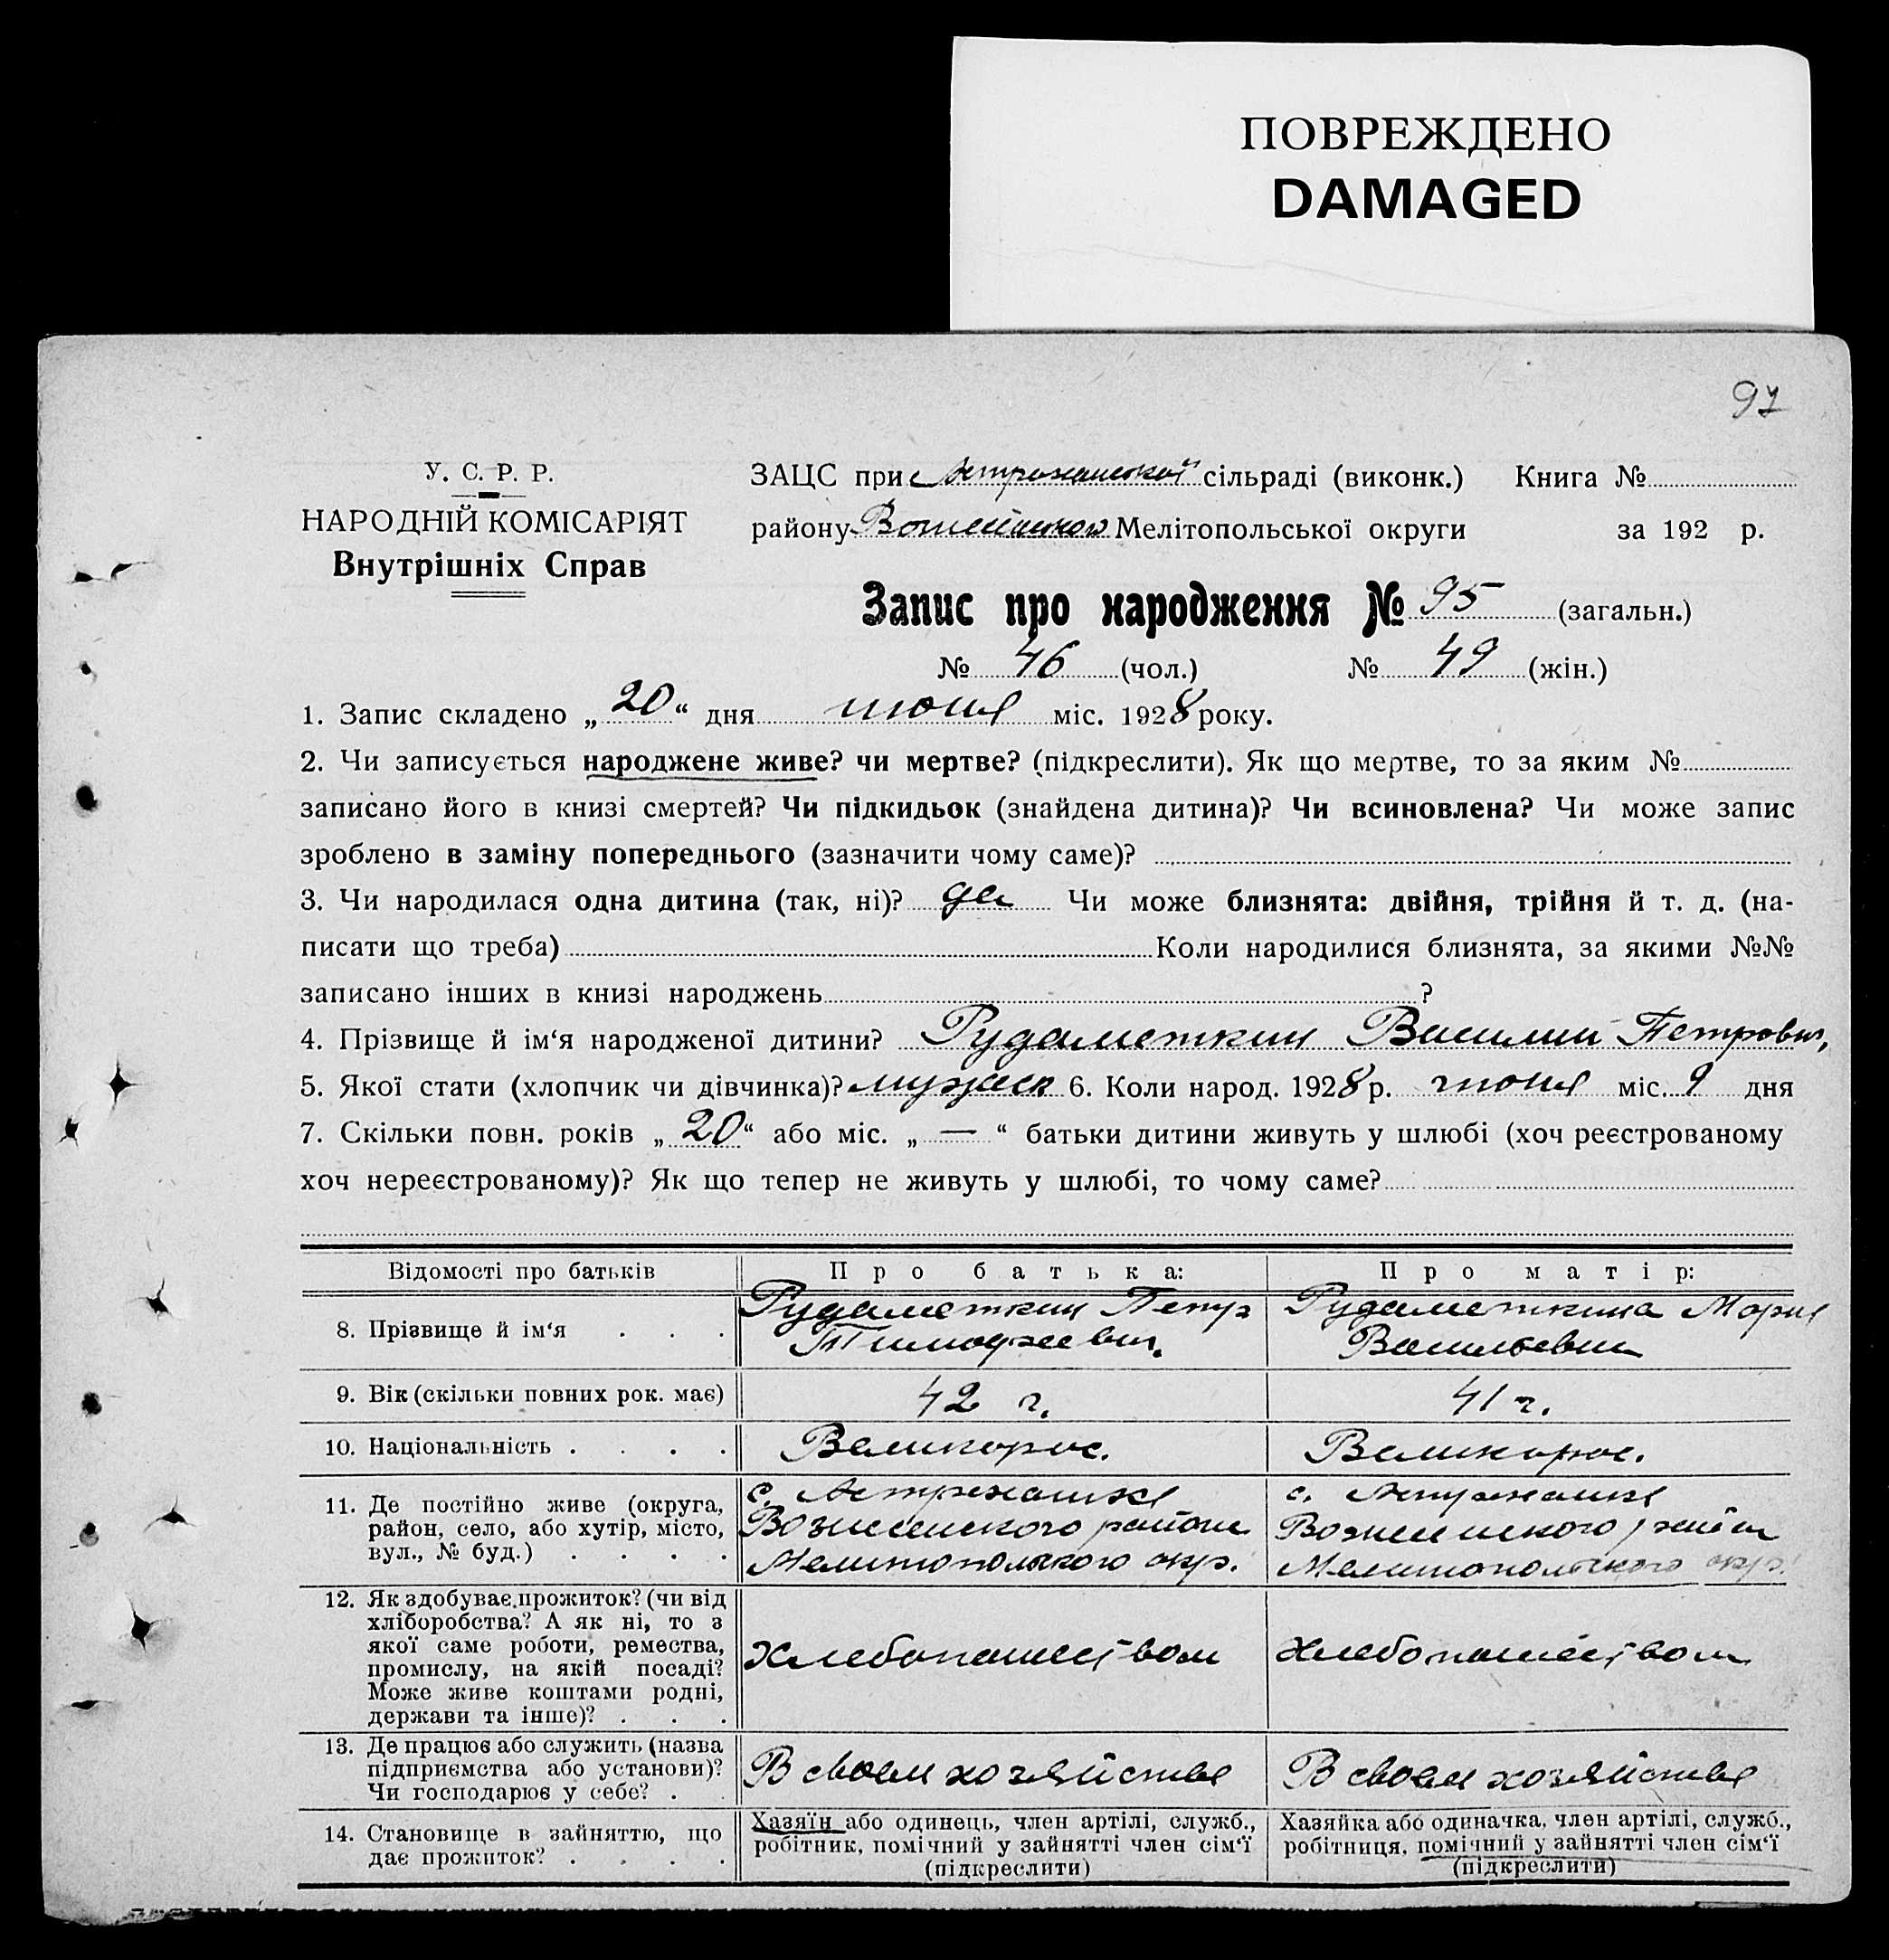 ПОВРЕЖДЕНО
DAMAGED
97
У. С. Р. Р.
НАРОДНІЙ КОМІСАРІЯТ
Внутрішніх Справ
ЗАЦС при Астраханской сільраді (виконк.) Книга №
району Мелітопольської округи за 192 р.
Запис про народження № 95 (загальн.)
№ 46 (чол.) № 49 (жін.)
1. Запис складено „ 20 “ дня июня міс. 1928 року.
2. Чи записується народжене живе? чи мертве? (підкреслити). Як що мертве, то за яким №
записано його в книзі смертей? Чи підкидьок (знайдена дитина)? Чи всиновлена? Чи може запис
зроблено в заміну попереднього (зазначити чому саме)?
3. Чи народилася одна дитина (так, ні)? да Чи може близнята: двійня, трійня й т. д. (на-
писати що треба) Коли народилися близнята, за якими №№
записано інших в книзі народжень ?
4. Прізвище й ім‘я народженої дитини? Рудаметкин Василий Петрович,
5. Якої стати (хлопчик чи дівчинка)? мужск 6. Коли народ. 1928 р. июня міс. 9 дня
7. Скільки повн. років „ 20 “ або міс. „ — “ батьки дитини живуть у шлюбі (хоч реєстрованому
хоч нереєстрованому)? Як що тепер не живуть у шлюбі, то чому саме?
Відомості про батьків Про батька: Про матір:
8. Прізвище й ім‘я . . . Рудаметкин Петр Рудаметкина Мария
Тимофеевич. Васильевна
9. Вік (скільки повних рок. має) 42 г. 41 г.
10. Національність . . . . Великорос. Великорос.
11. Де постійно живе (округа, район, село, або хутір, місто, вул., № буд.) . . . .
с. Астраханка
Вознесенского района
Мелитопольского окр.
с. Астраханка
Вознесенского района
Мелитопольского окр.
12. Як здобуває прожиток? (чи від
хліборобства? А як ні, то з
якої саме роботи, ремества,
промислу, на якій посаді?
Може живе коштами родні,
держави та інше)? . . .
Хлебопашеством Хлебопашеством
13. Де працює або служить (назва
підприємства або установи)?
Чи господарює у себе? . .
В своем хозяйстве В своем хозяйстве
14. Становище в зайняттю, що
дає прожиток? . . . .
Хазяїн або одинець, член артілі, служб.,
робітник, помічний у зайнятті член сім‘ї
(підкреслити)
Хазяйка або одиначка, член артілі, служб.,
робітниця, помічний у зайнятті член сім‘ї
(підкреслити)